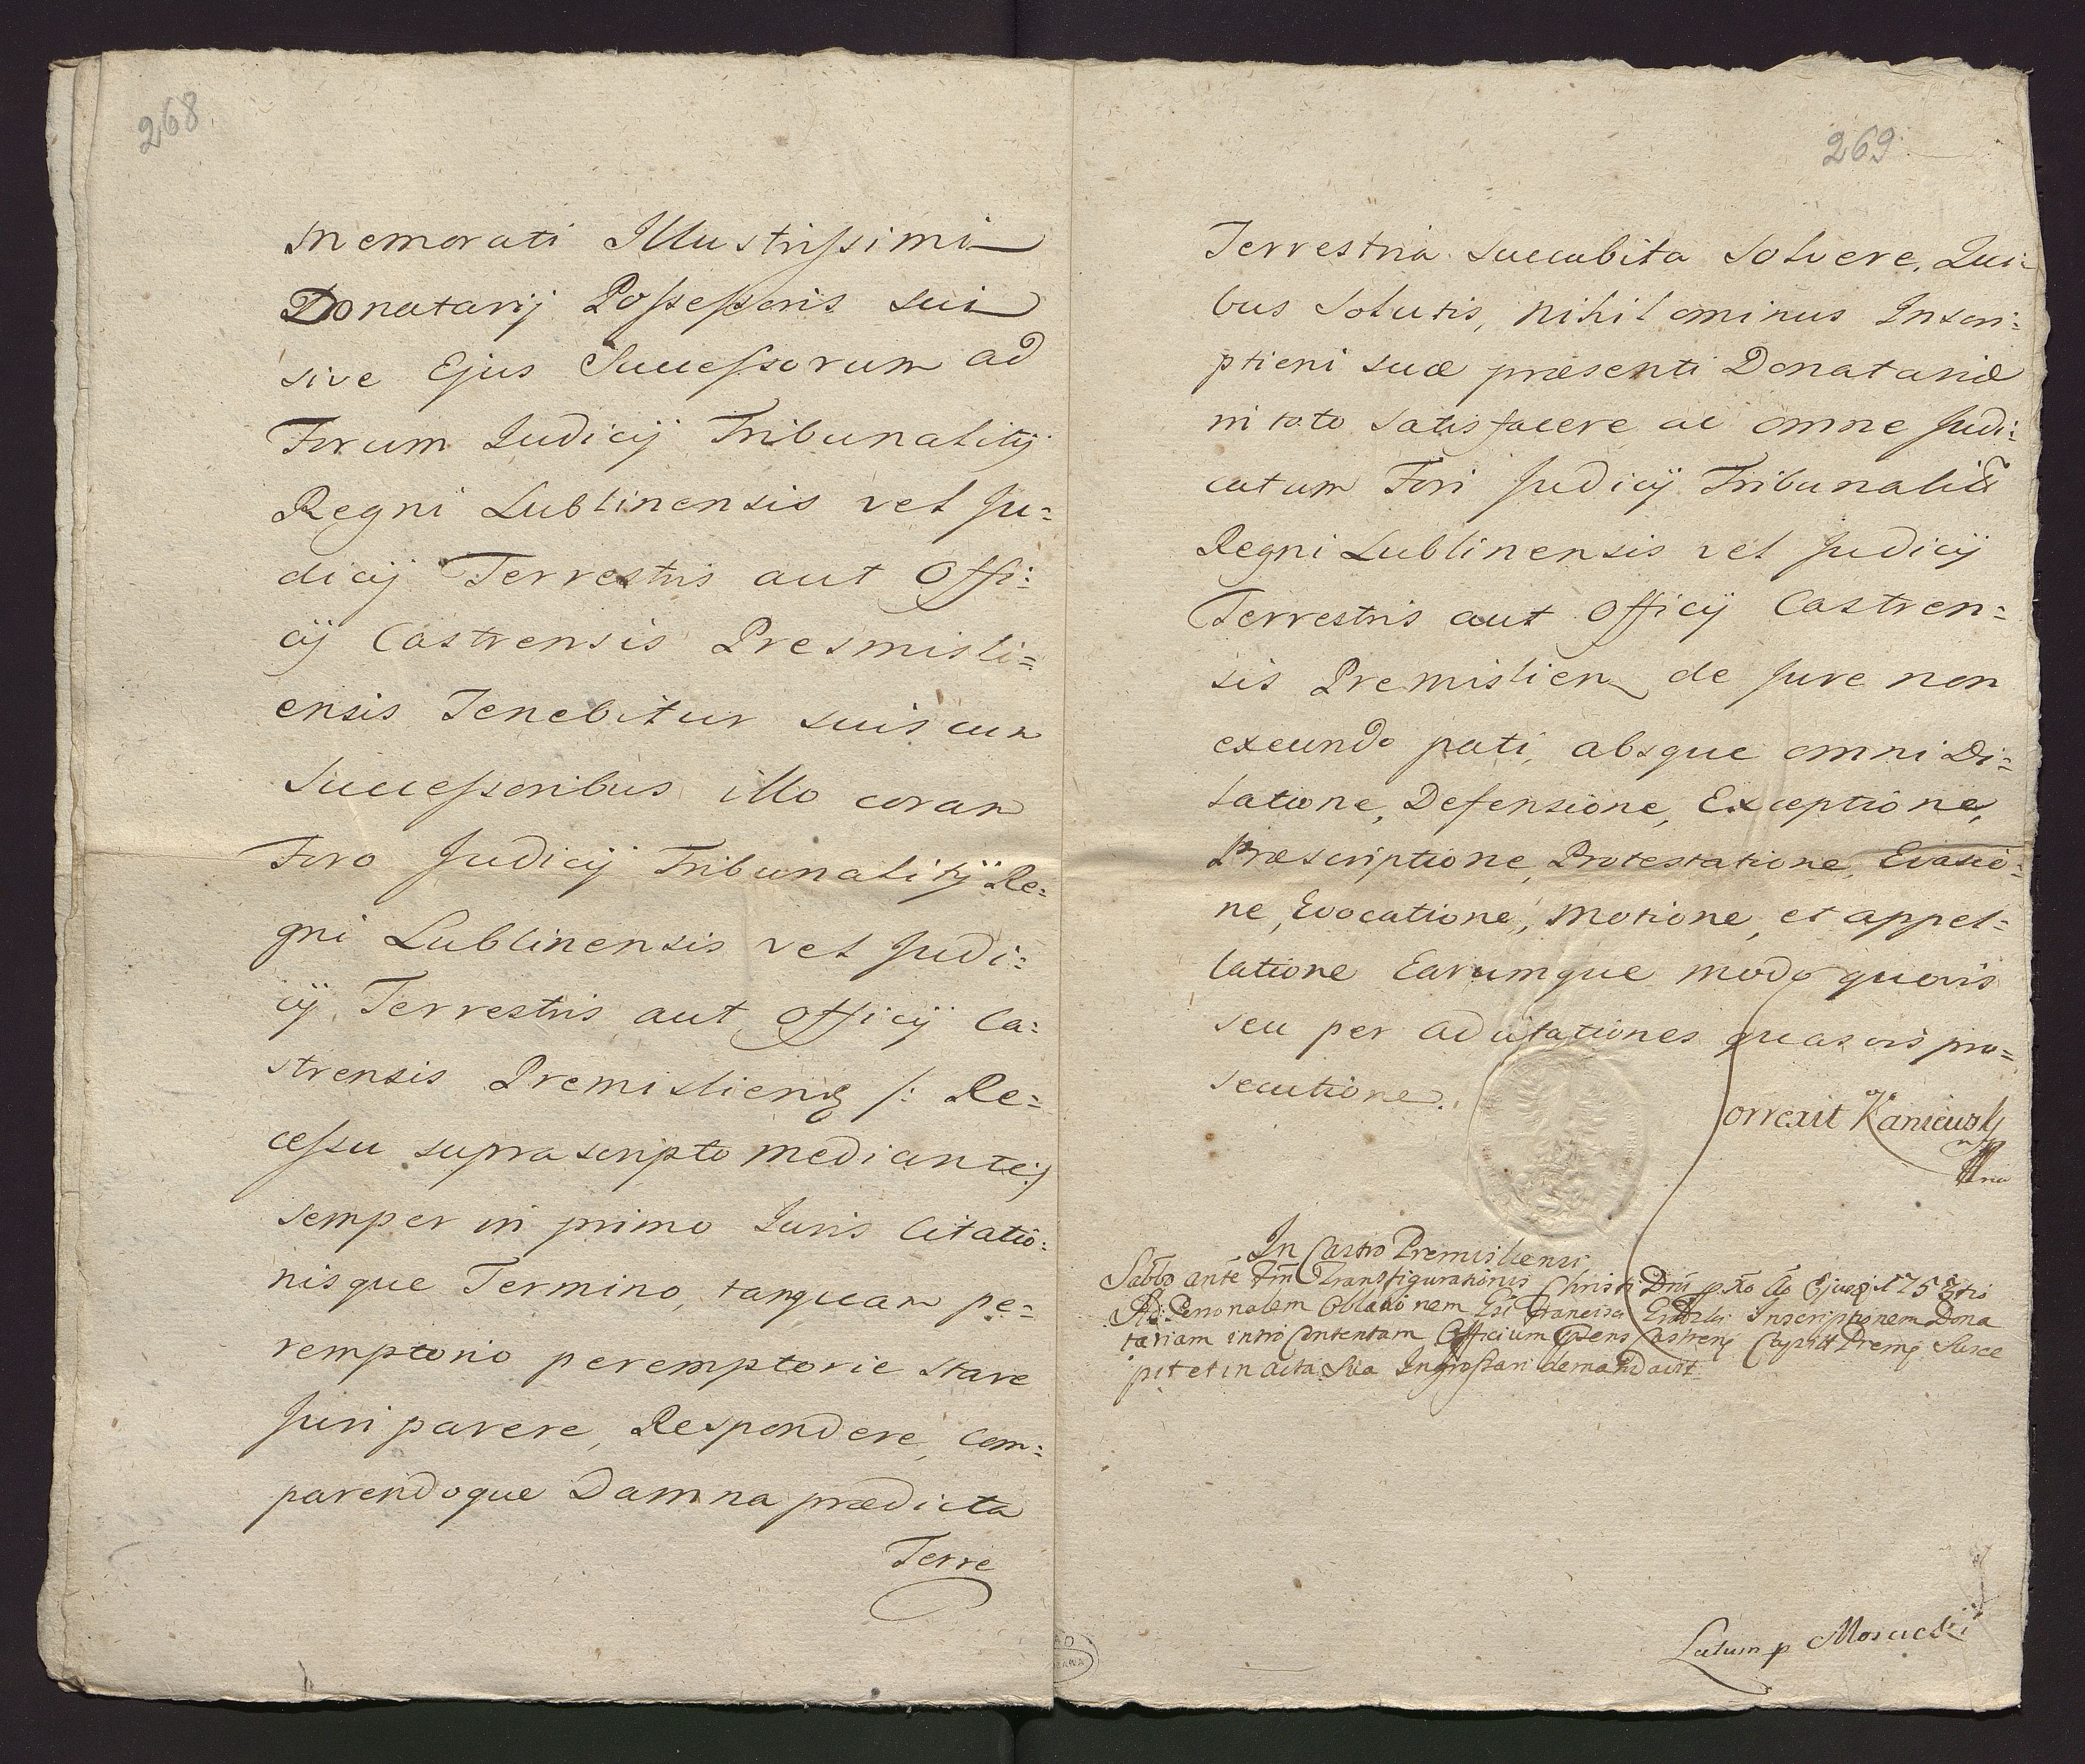 268
memorati Illustrissimi
Donatarij Possessoris sui
sive Ejus Successorum ad
Forum Judicij Tribunalitij
Regni Lublinensis vel Ju=
dicij Terrestris aut Offi=
cij Castrensis Presmisli=
ensis Tenebitur suis cum
Successoribus illo coram
Foro Judicij Tribunalitij Re=
gni Lublinensis vel Judi=
cij Terrestris aut Officij Ca=
strensis Premislien /: Re=
cessu suprascripto mediante :/
semper in primo Juris Citatio=
nisque Termino, tanquam pe=
remptorio peremptorie stare
Juri parere, Respondere, Com=
parendoque Damna prædicta
Terre
269
Terrestria succubita Solvere, Qui=
bus Solutis, nihilominus Inscri=
ptioni suæ præsenti Donatariæ
in toto Satisfacere ac omne Judi=
catum Fori Judicij Tribunalitij
Regni Lublinensis vel Judicij
Terrestris aut Officij Castren=
sis Premislien de Jure non
exeundo pati, absque omni Di=
latione, Defensione, Exceptione,
Præscriptione, Protestatione, Evasio=
ne, Evocatione, Motione, et appel=
latione Earumque modo quovis
seu per adcitationes quasvis pro=
secutione.
Correxit Kaniewski
mp
In Castro Premisliensi
Sabbo ante Fm Transfigurationis Christi Dni pto Ao Ejusd 1753tio
Ad Personalem Oblationem Francisci Inscriptionem Dona
tariam intro Contentam Officium Castren Capitt Premis Susce
pit et in acta Sua Ingrossari demandavit
Lectum p Mosucki